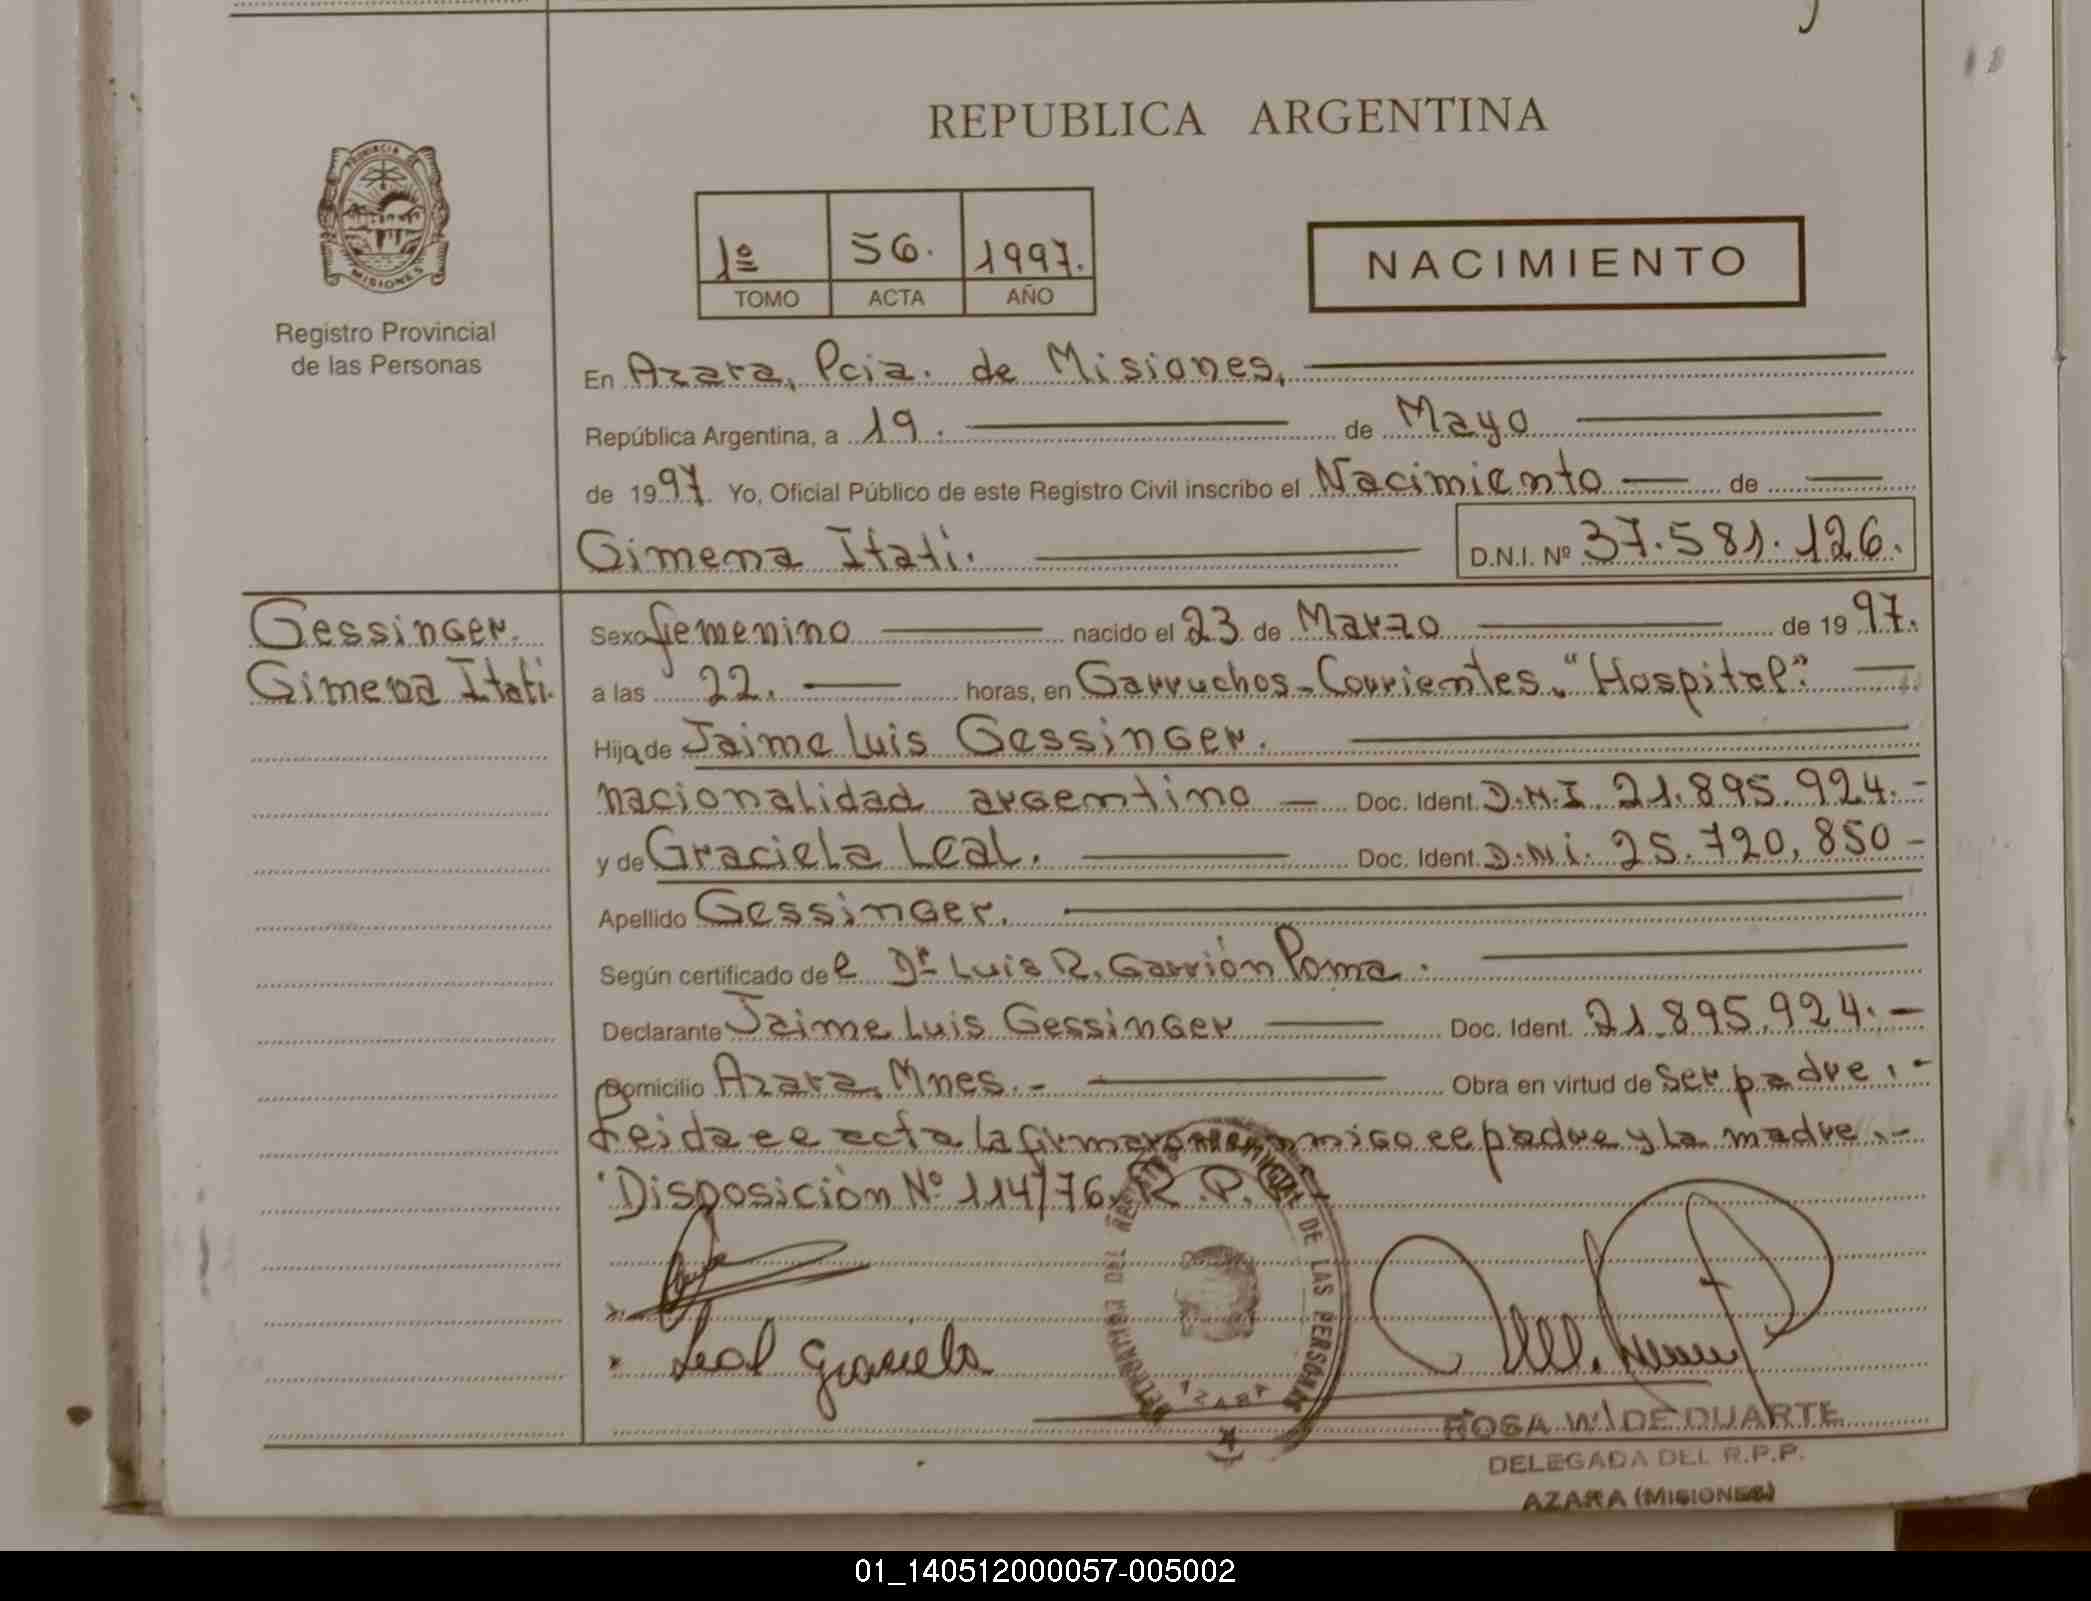 REPUBLICA ARGENTINA
PROVINCIA DE
MISIONES
Registro Provincial
de las Personas
1º 56. 1997.
TOMO ACTA AÑO
NACIMIENTO
En Azara, Pcia. de Misiones,
República Argentina, a 19. de Mayo
de 1997. Yo, Oficial Público de este Registro Civil inscribo el Nacimiento de
Gimena Itati. D.N.I. Nº 37.581.126.
Gessinger.
Gimena Itati.
Sexo femenino nacido el 23 de Marzo de 1997.
a las 22. horas, en Garruchos-Corrientes. "Hospital".
Hija de Jaime Luis Gessinger.
nacionalidad argentino Doc. Ident. D.N.I. 21.895.924.-
y de Graciela Leal. Doc. Ident. D.N.i. 25.720,850-
Apellido Gessinger.
Según certificado del Dr Luis R. Garrión Poma.
Declarante Jaime Luis Gessinger Doc. Ident. 21.895.924.-
Domicilio Azara, Mnes.- Obra en virtud de ser padre.-
Leida el acta la firmaron conmigo el padre y la madre.-
Disposición Nº 114/76. R.P.P.
Leal Graciela
REGISTRO PROVINCIAL DE LAS PERSONAS
AZARA
ROSA W. DE DUARTE
DELEGADA DEL R.P.P.
AZARA (MISIONES)
01_140512000057-005002